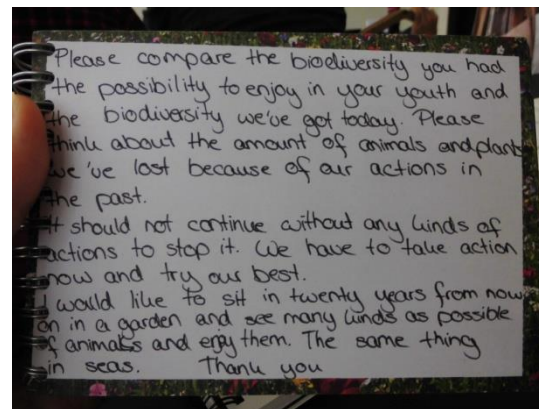 Please compare the biodiversity you had
the possibility to enjoy in your youth and
the biodiversity we've got today. Please
think about the amount of animals and plants
we've lost because of our actions in
the past.
It should not continue without any kinds of
actions to stop it. We have to take action
now and try our best.
I would like to sit in twenty years from now
on in a garden and see many kinds as possible
of animals and enjoy them. The same thing
in seas. Thank you